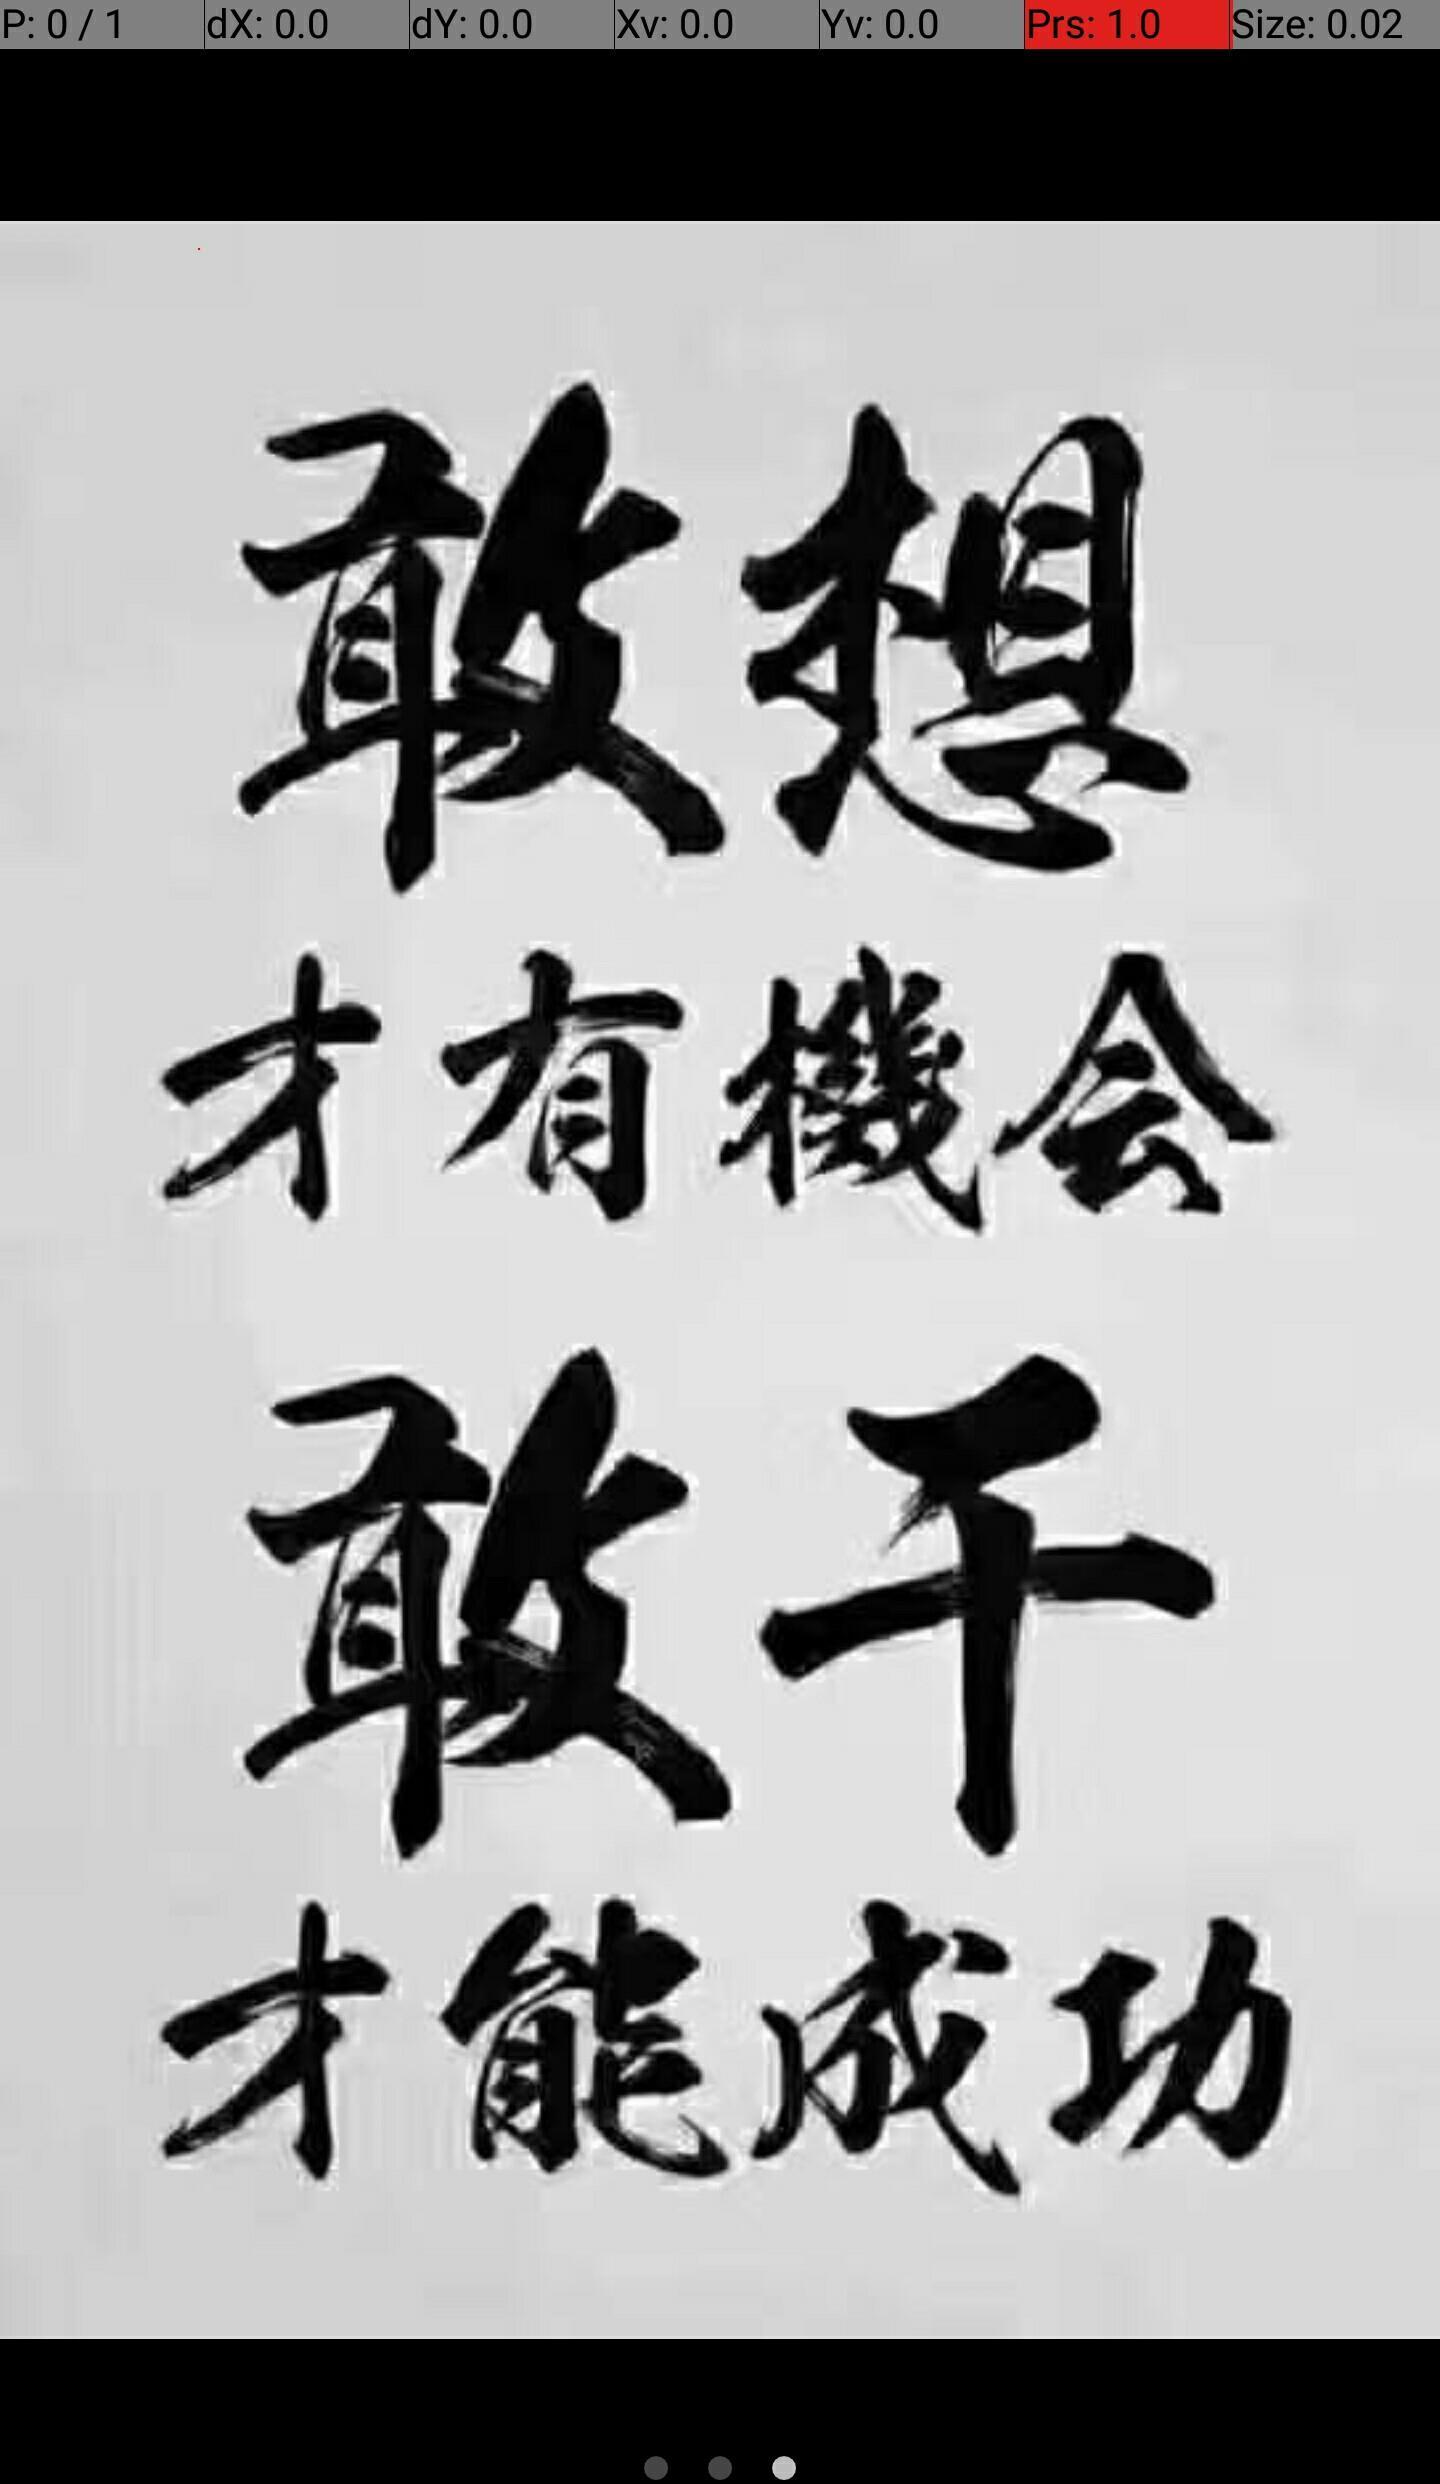 P: 0 / 1 dX: 0.0 dY: 0.0 Xv: 0.0 Yv: 0.0 Prs: 1.0 Size: 0.02
敢想
才有機会
敢干
才能成功